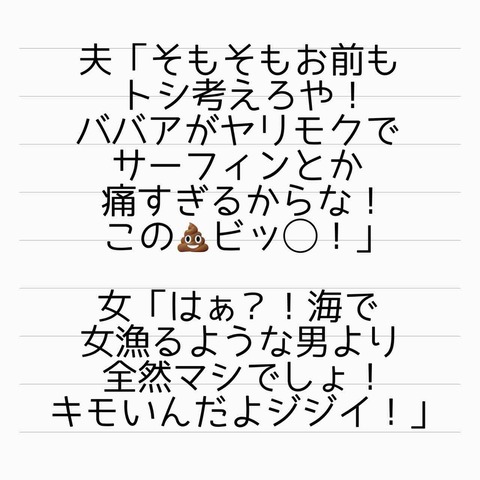 夫「そもそもお前も
トシ考えろや！
ババアがヤリモクで
サーフィンとか
痛すぎるからな！
この💩ビッ◯！」
女「はぁ？！海で
女漁るような男より
全然マシでしょ！
キモいんだよジジイ！」